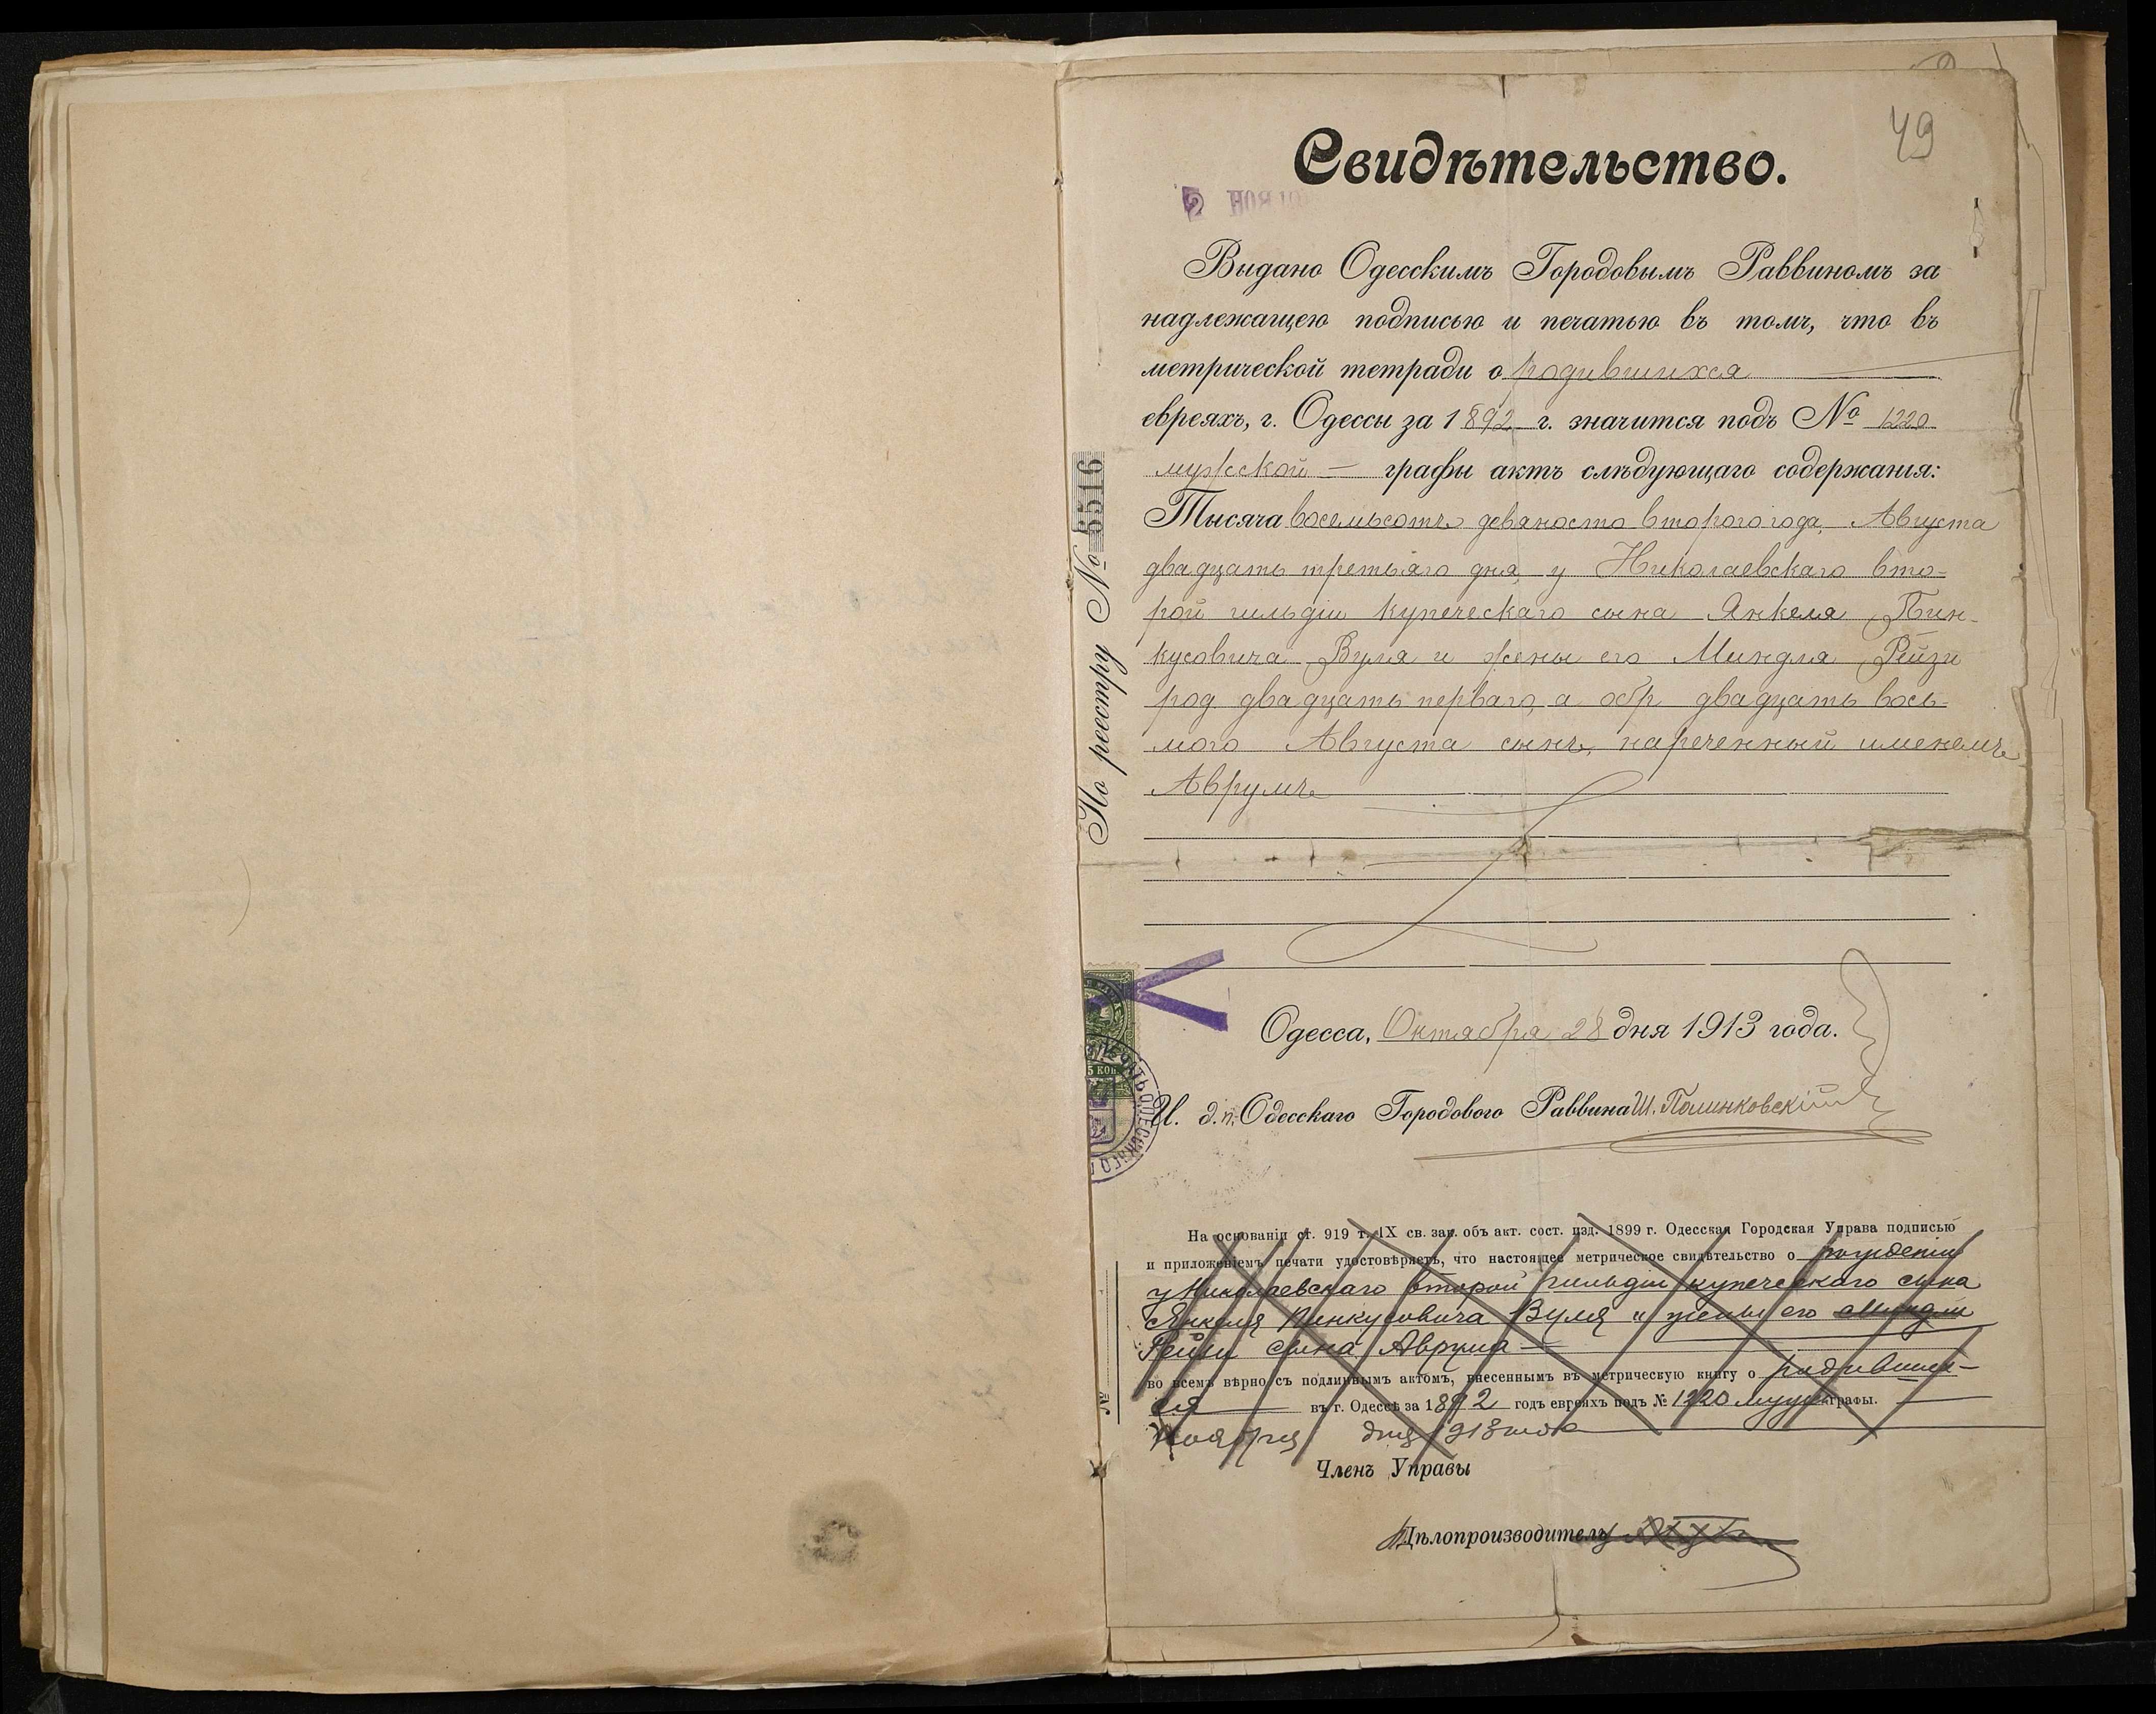 49
Свидѣтельство.
Выдано Одесскимъ Городовымъ Раввиномъ за
надлежащею подписью и печатью въ томъ, что въ
метрической тетради о родившихся
евреяхъ, г. Одессы за 1892 г. значится подъ № 1220
мужской графы актъ слѣдующаго содержанія:
Тысяча восемьсотъ девяносто второго года, Августа
двадцать третьяго дня, у Николаевскаго вто-
рой гильдіи купеческаго сына Янкеля Пин-
кусовича Вуля и жены его Миндля Рейзи
род двадцать перваго, а обр двадцать вось-
мого Августа сынъ, нареченный именемъ
Аврумъ
По реестру № 6516
Одесса, Октября 28 дня 1913 года.
5 КОП.
И. д. п. Одесскаго Городового Раввина Ш. Полинковскій
На основаніи ст. 919 т. IX св. зак. объ акт. сост. изд. 1899 г. Одесская Городская Управа подписью
и приложеніемъ печати удостовѣряетъ, что настоящее метрическое свидѣтельство о рожденіи
у Николаевскаго второй гильдіи купеческаго сына
Янкеля Пинкусовича Вуля и жены его Миндли
Рейзи сына Аврума
во всемъ вѣрно съ подлиннымъ актомъ, внесеннымъ въ метрическую книгу о родивших-
ся въ г. Одессѣ за 1892 годъ евреяхъ подъ № 1220 муж. графы.
Ноября дня 1913 года
№
Членъ Управы
Дѣлопроизводитель